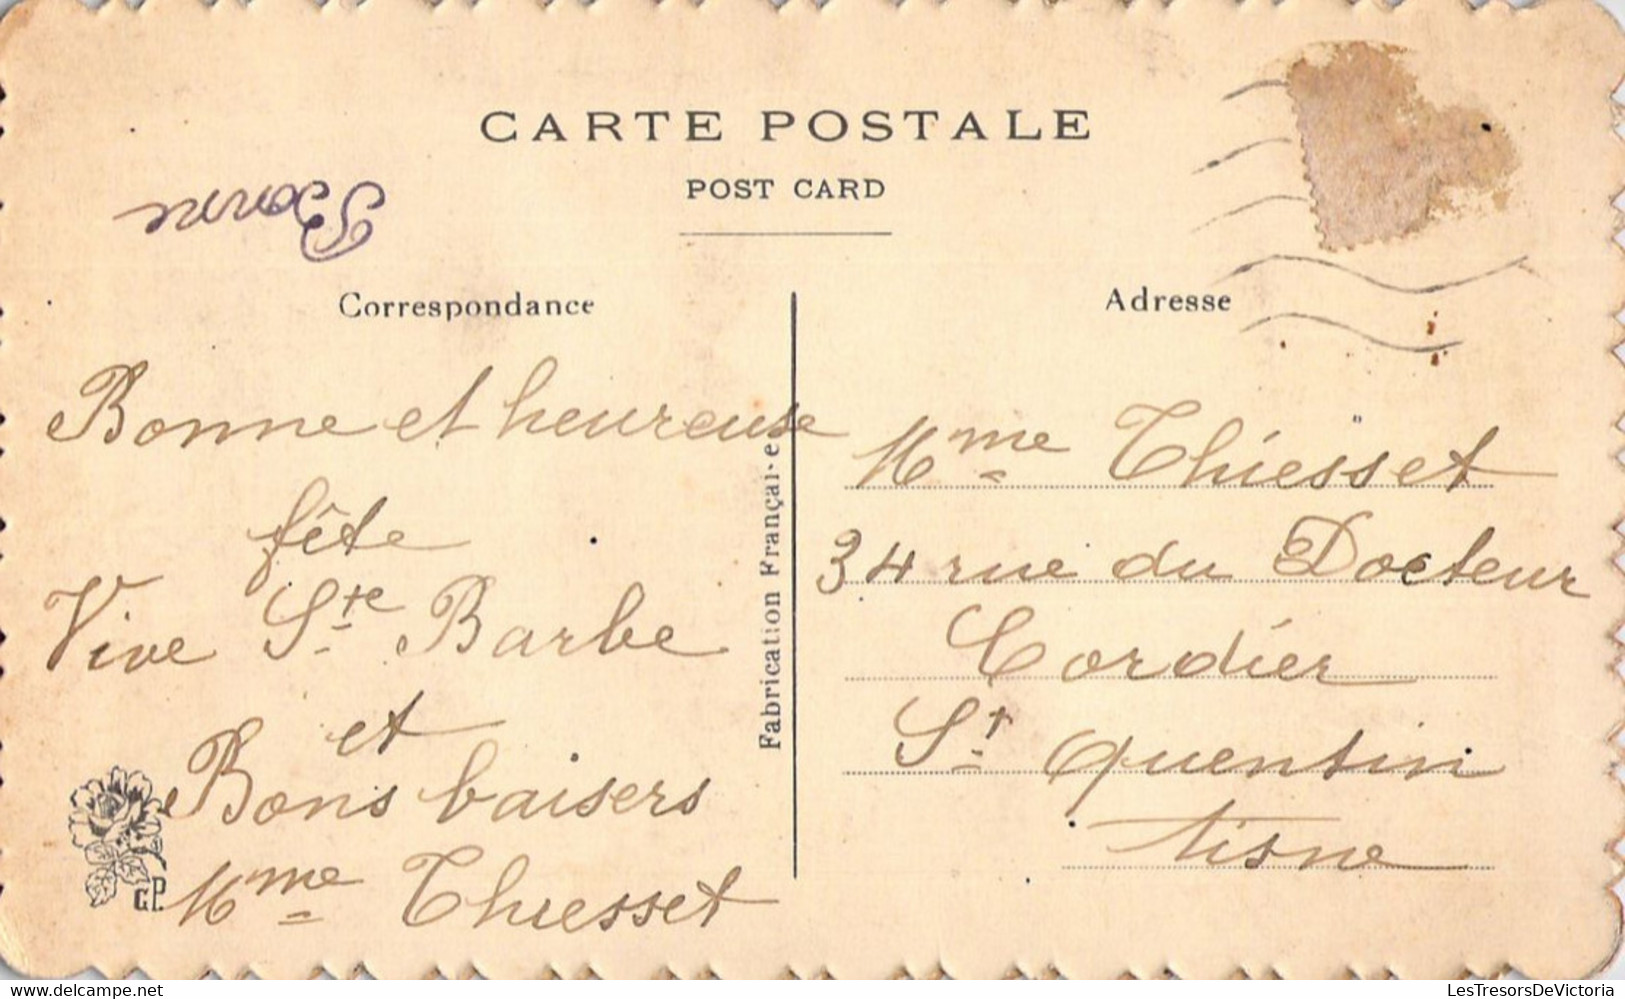 CARTE POSTALE
POST CARD
Bonne
Correspondance
Bonne et heureuse
fête
Vive Ste Barbe
et
Bons baisers
Mme Thiesset
G.P.
Fabrication Française
Adresse
Mme Thiesset
34 rue du Docteur
Cordier
St Quentin
Aisne
LesTresorsDeVictoria